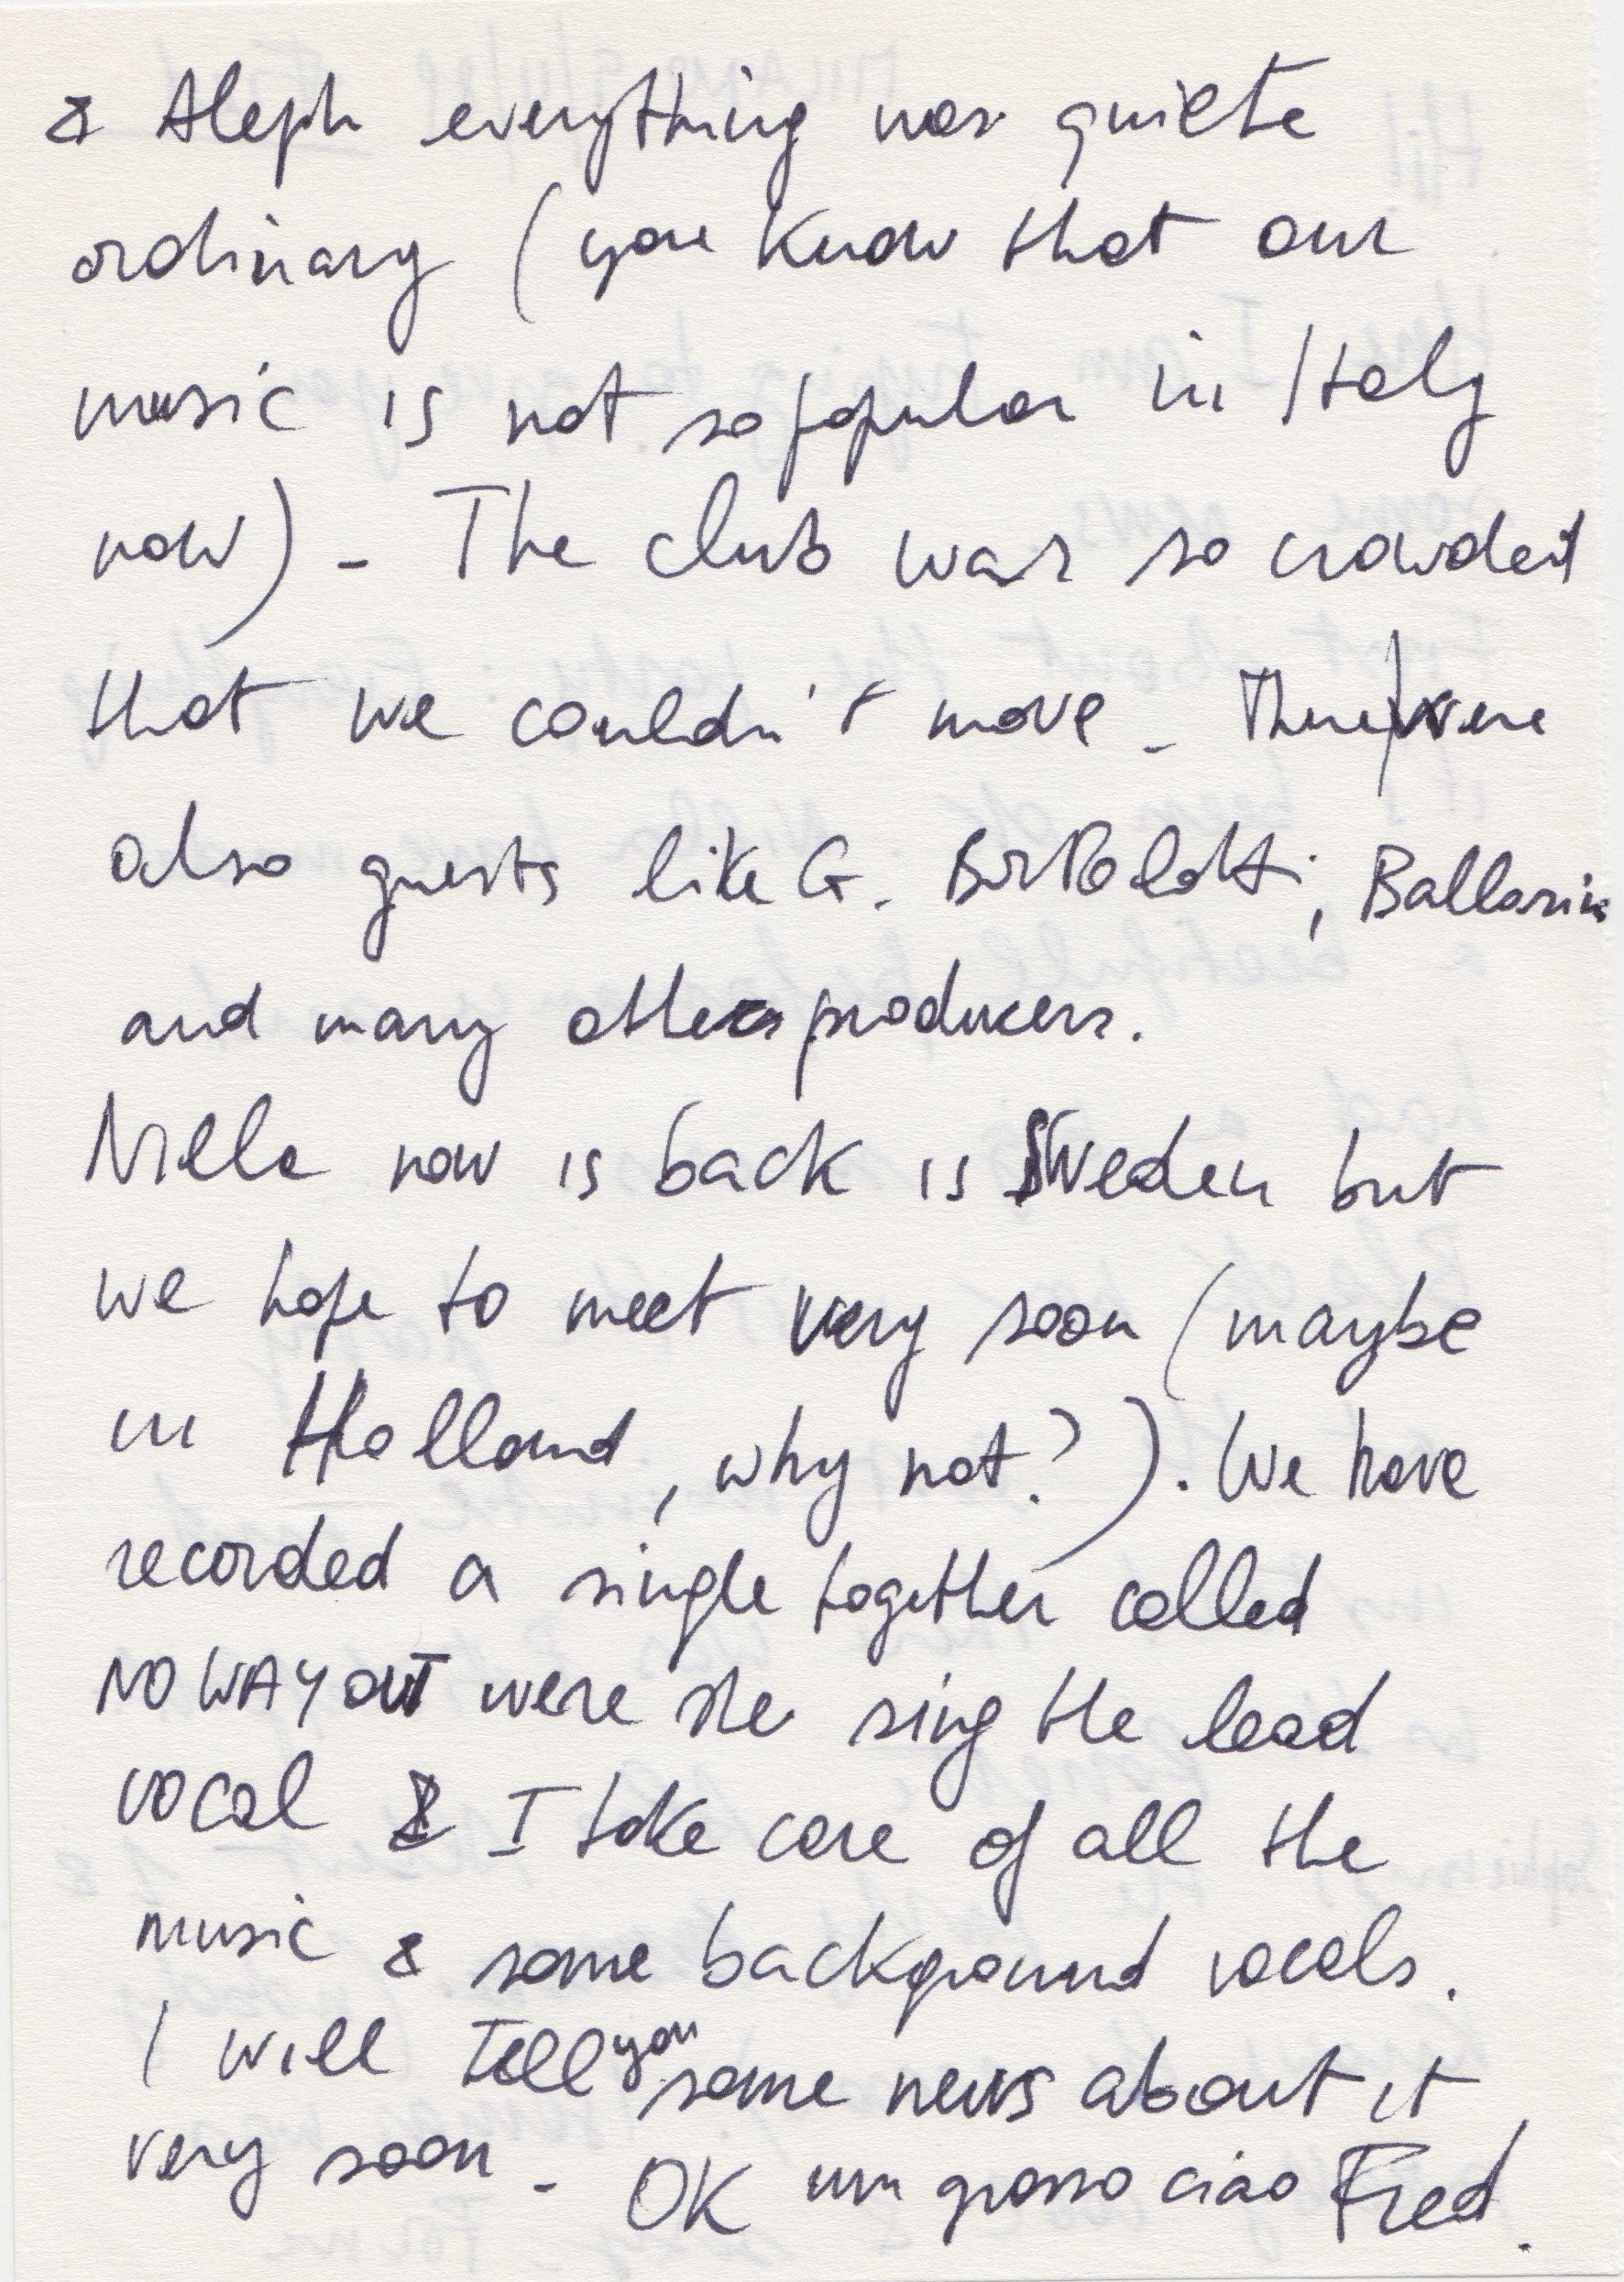 & Aleph everything was quiete
ordinary (you know that our
music is not so popular in Italy
now) - The club was so crowded
that we couldn't move - There were
also guests like G. Bortolotti, Ballarin
and many others producers.
now is back is Sweden but
we hope to meet very soon (maybe
in Holland, why not?). We have
recorded a single together called
NO WAY OUT were she sing the lead
vocal & I take care of all the
music & some background vocals.
I will tell you some news about it
very soon - OK un grosso ciao Fred.